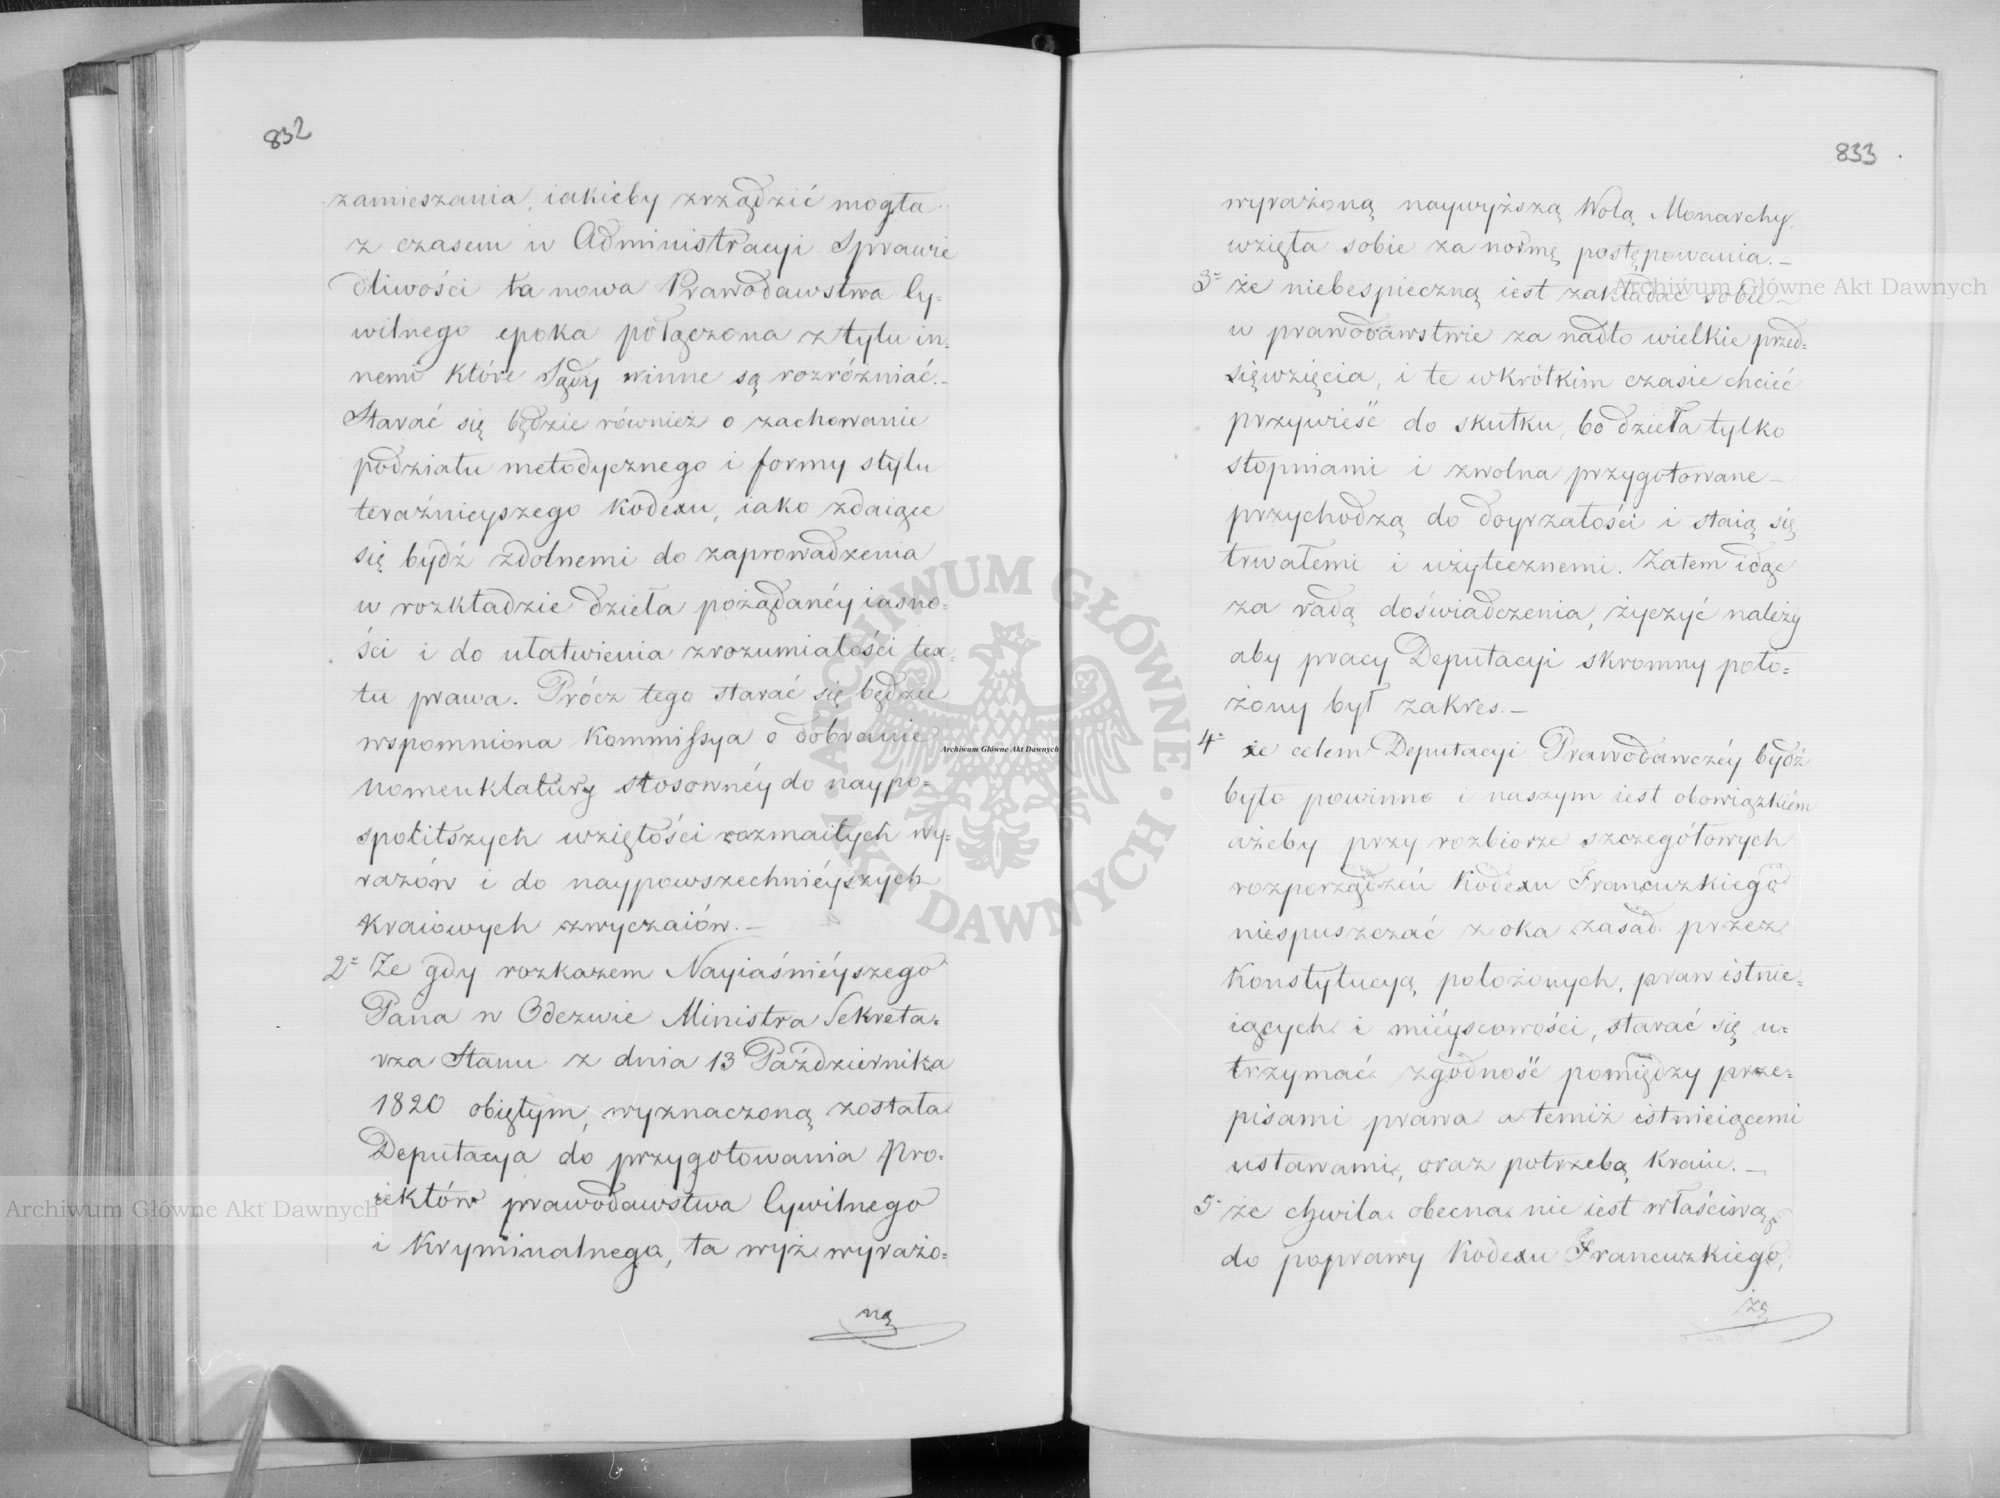 832
zamieszania, iakieby zrządzić mogła
z czasem w Administracyi Sprawie
dliwości ta nowa Prawodawstwa Cy-
wilnego epoka połączona z tylu in-
nemi które Sądy winne są rozróżniać.-
Starać się będzie również o zachowanie
podziału metodycznego i formy stylu
teraźnieyszego Kodexu, iako zdaiące
się bydź zdolnemi do zaprowadzenia
w rozkładzie dzieła pożądanéy iasno=
ści i do ułatwienia zrozumiałości tex=
tu prawa. Prócz tego starać się będzie
wspomniona Kommissya o dobranie
nomenklatury stosownéy do naypo=
spolitszych wziętości rozmaitych wy-
razów i do naypowszechniéyszych
kraiowych zwyczaiów.-
2= Że gdy rozkazem Nayiaśniéyszego
Pana w Odezwie Ministra Sekreta=
rza Stanu z dnia 13 Października
1820 obiętym, wyznaczoną została
Deputacya do przygotowania Pro=
iektów prawodawstwa Cywilnego
i Kryminalnego, ta wyż wyrażo=
ną
833
wyrażoną naywyższą Wolą Monarchy
wzięła sobie za normę postępowania.-
3= że niebespieczną iest zakładać sobie-
w prawodawstwie za nadto wielkie przed=
sięwzięcia, i te wkrótkim czasie chcieć
przywieść do skutku, bo dzieła tylko
stopniami i zwolna przygotowane-
przychodzą do doyrzałości i staią się
trwałemi i użytecznemi. Zatem idąc
za radą doświadczenia, życzyć należy
aby pracy Deputacyi skromny poło=
żony był zakres.-
4= że celem Deputacyi Prawodawczéy bydź
było powinno i naszym iest obowiązkiém
ażeby przy rozbiorze szczegółowych
rozporządzeń Kodexu Francuzkiego
niespuszczać z oka zasad przez
Konstytucyą położonych, praw istnie=
iących i miéyscowości, starać się u=
trzymać zgodność pomiędzy prze=
pisami prawa a temiż istnieiącemi
ustawami, oraz potrzebą Kraiu.-
5- że chwila obecna nie iest właściwą
do poprawy Kodexu Francuzkiego,
żę
Archiwum Główne Akt Dawnych
Archiwum Główne Akt Dawnych
Archiwum Główne Akt Dawnych
ARCHIWUM GŁÓWNE · AKT DAWNYCH ·